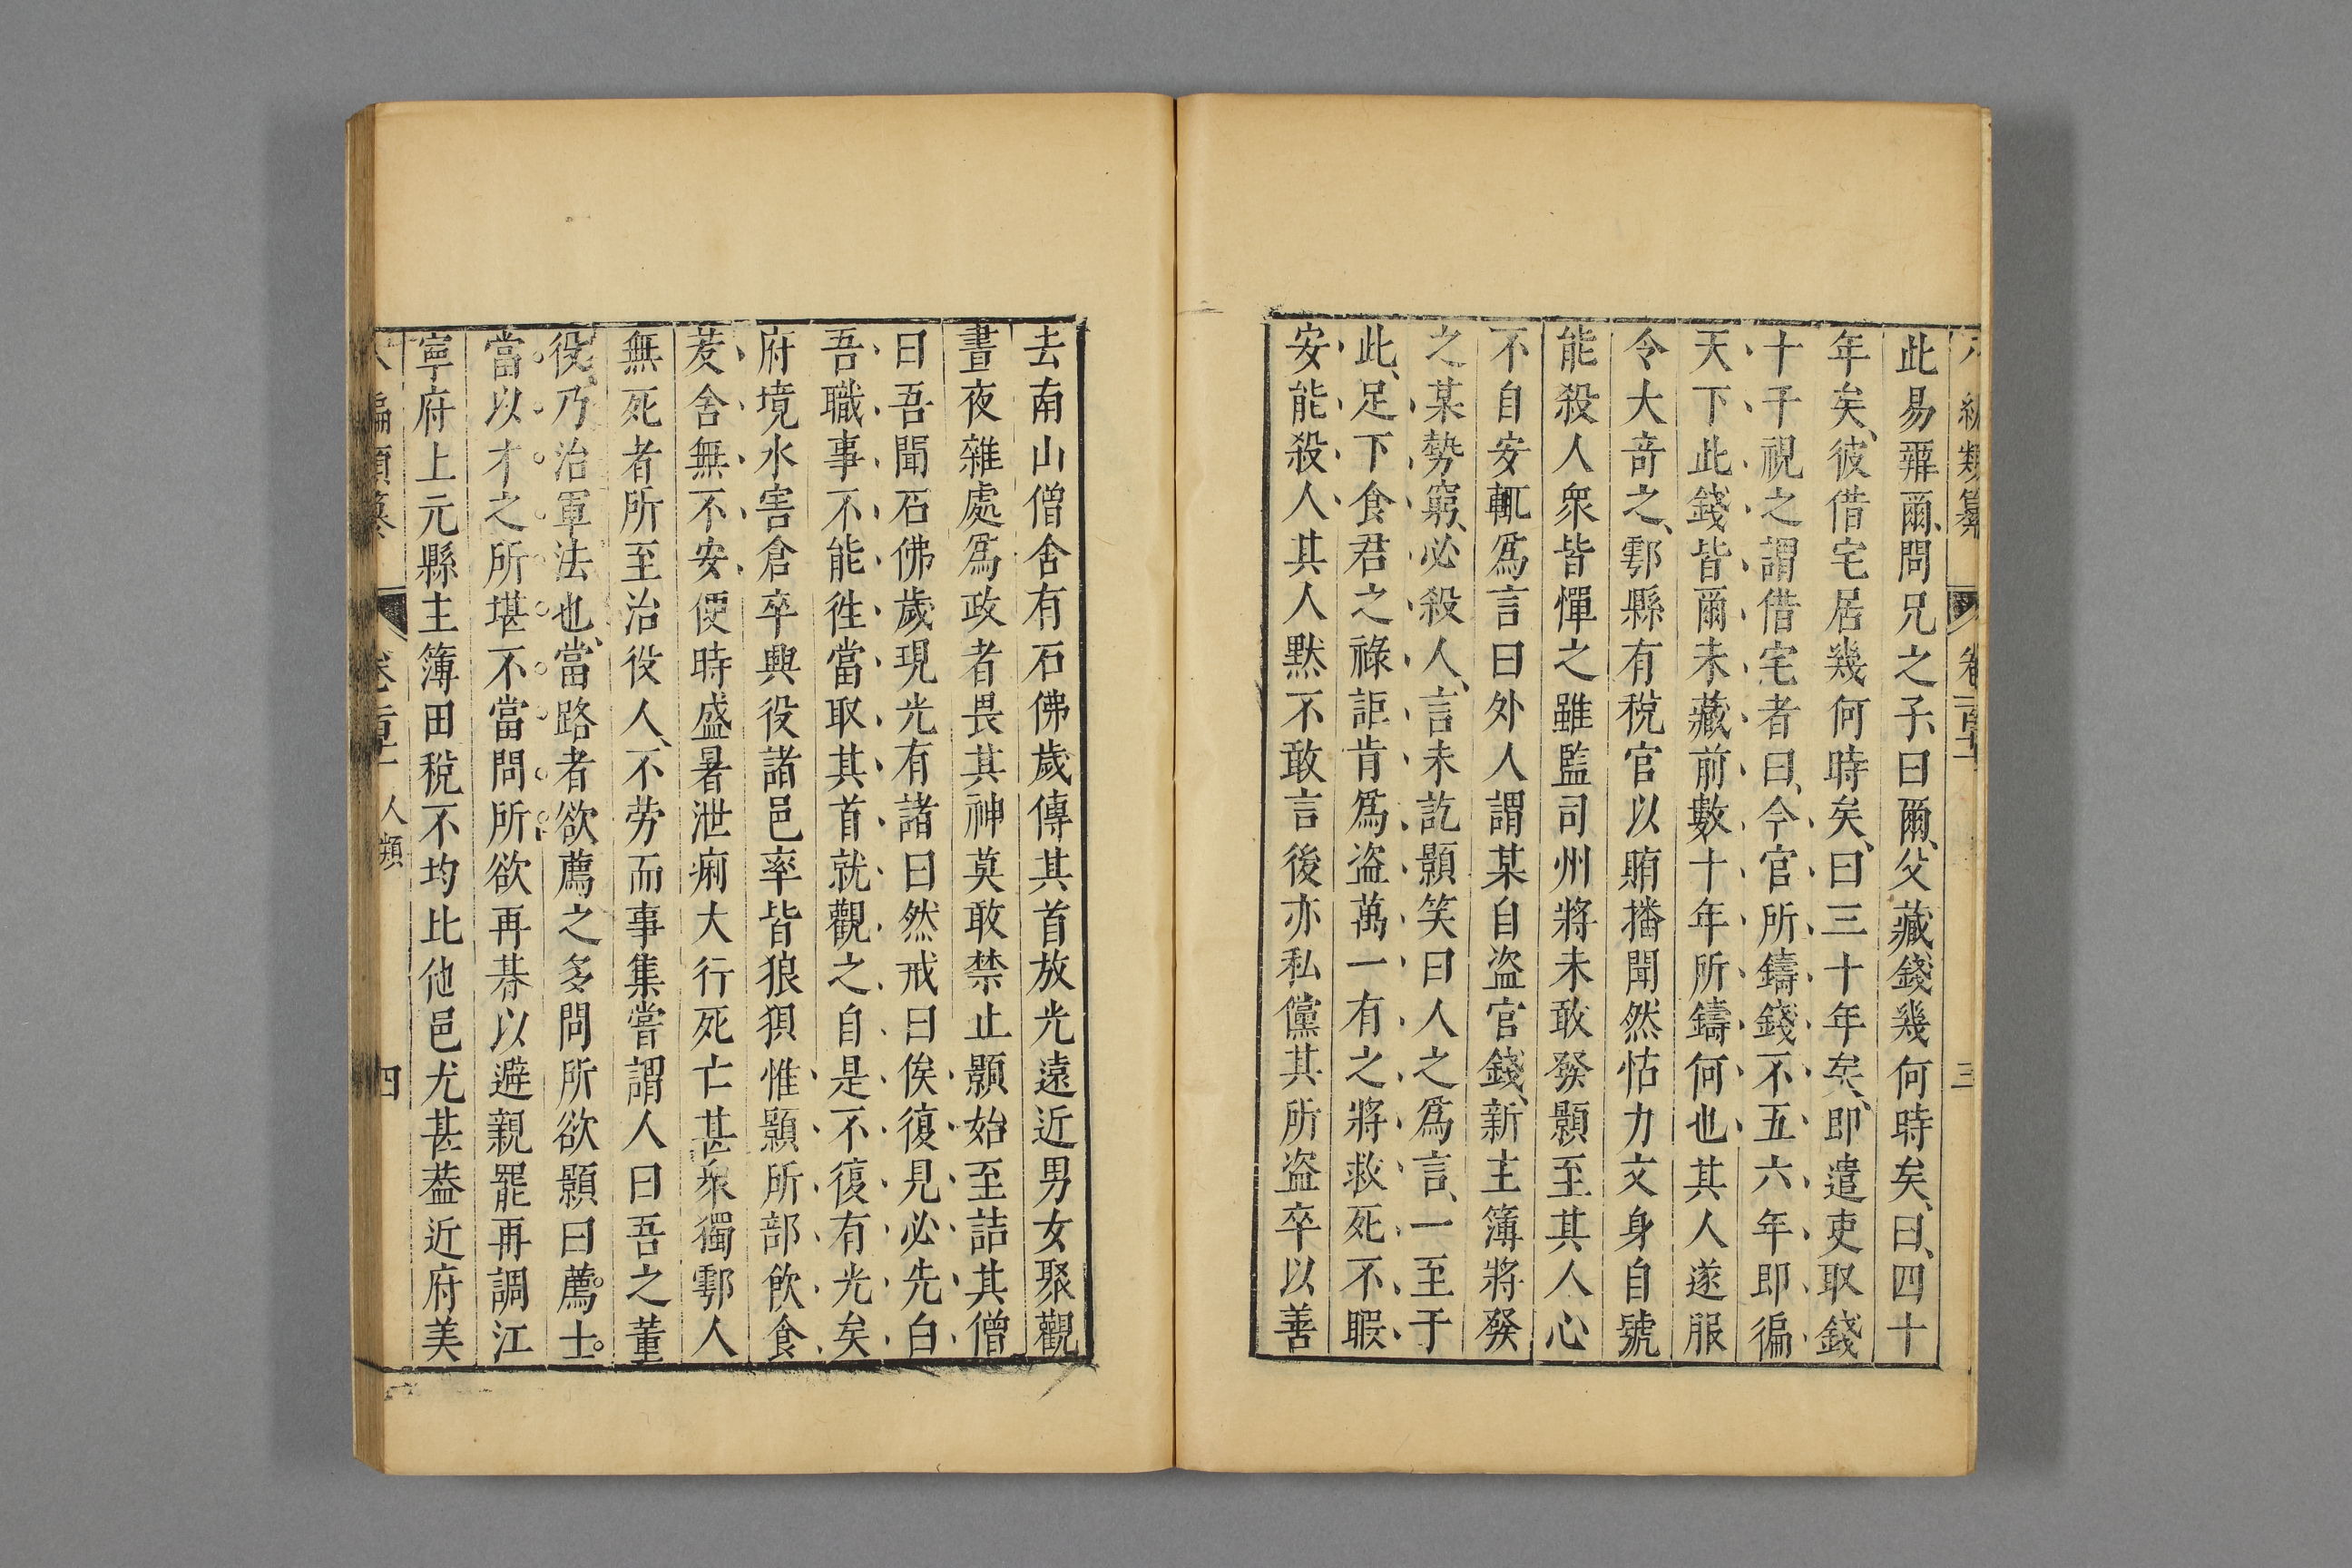 編類纂 卷 三
此易辨爾問兄之子曰爾父藏錢幾何時矣曰四十
年矣彼借宅居幾何時矣曰三十年矣即遣吏取錢
十千視之謂借宅者曰今官所鑄錢不五六年即徧
天下此錢皆爾未藏前數十年所鑄何也其人遂服
令大奇之鄠縣有稅官以賄播聞然怙力文身自號
能殺人衆皆憚之雖監司州將未敢發顥至其人心
不自安輒爲言曰外人謂某自盜官錢新主簿將發
之某勢窮必殺人言未訖顥笑曰人之爲言一至于
此足下食君之祿詎肯爲盜萬一有之將救死不暇
安能殺人其人默不敢言後亦私儻其所盜卒以善
去南山僧舍有石佛歲傳其首放光遠近男女聚觀
晝夜雜處爲政者畏其神莫敢禁止顥始至詰其僧
曰吾聞石佛歲現光有諸曰然戒曰俟復見必先白
吾職事不能徃當取其首就觀之自是不復有光矣
府境水害倉卒興役諸邑率皆狼狽惟顥所部飲食
茇舍無不安便時盛暑泄痢大行死亡甚衆獨鄠人
無死者所至治役人不劳而事集嘗謂人曰吾之董
役乃治軍法也當路者欲薦之多問所欲顥曰薦士
當以才之所堪不當問所欲再朞以避親罷再調江
寧府上元縣主簿田稅不均比他邑尤甚葢近府美
編類纂 卷 人類 四